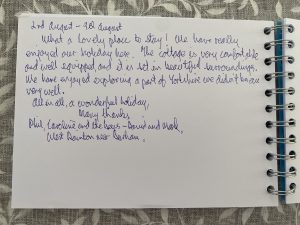 2nd August - 9th August
What a lovely place to stay! We have really
enjoyed our holiday here. The cottage is very comfortable
and well equipped and it is set in beautiful surroundings.
We have enjoyed exploring a part of Yorkshire we didn't know
very well.
All in all, a wonderful holiday,
Many thanks
Phil, Caroline and the boys - David and Mark,
West near